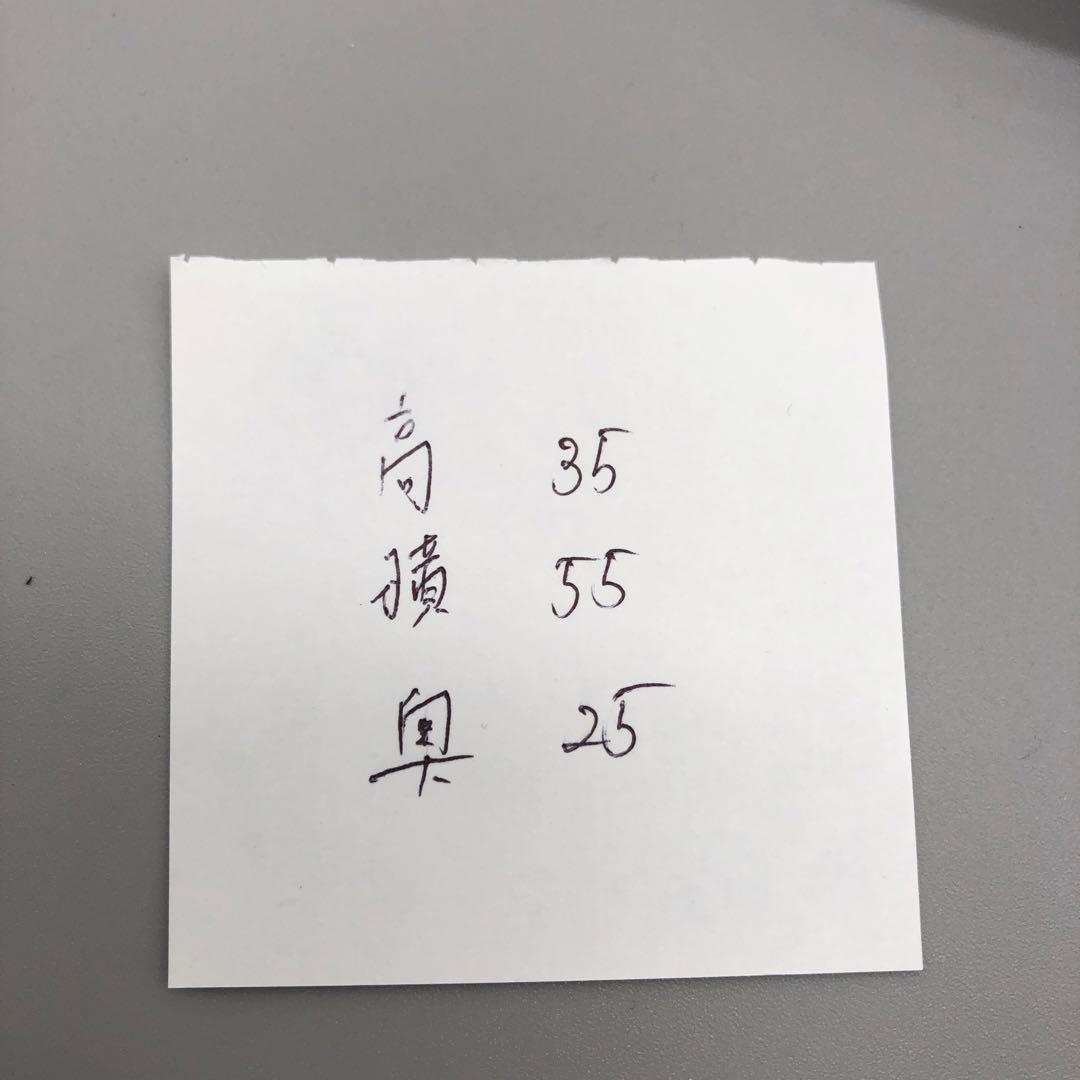 高 35
横 55
奥 25